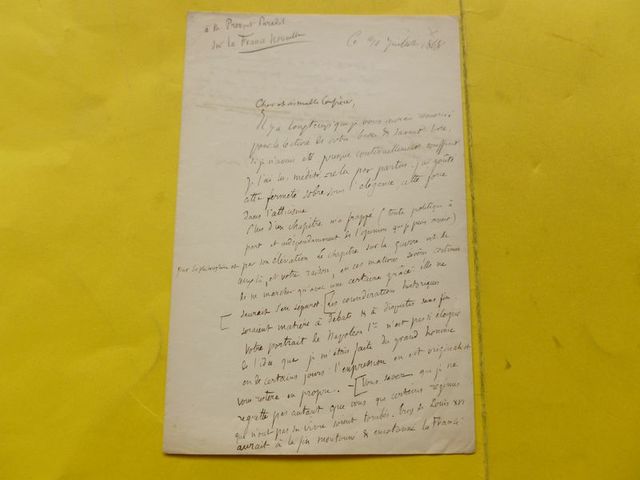 à M. Prevost Paradol
sur la France nouvelle
Ce 20 juillet 1868
Cher et aimable Confrère,
Il y a longtemps que je vous aurais remercié
pour la lecture de votre beau & savant livre,
si je n'avais été presque continuellement souffrant
Je l'ai lu, médité, relu par parties. J'ai goûté
cette fermeté sobre sous l'élégance cette force
dans l'atticisme.
Plus d'un chapitre m'a frappé (toute politique à
part et indépendamment de l'opinion que je puis avoir)
pour la philosophie et
par son élévation. Le chapitre sur la guerre est de
ceux-là, et votre raison, en ces matières
de ne marcher qu'avec une certaine grâce: elle ne
saurait s'en séparer. [Les considérations historiques
seraient matière à débat & à disputes sans fin.
Votre portrait de Napoléon Ier n'est pas si éloigné
de l'idée que je m'étais faite du grand homme
en de certains jours. L'expression en est originale et
vous restera en propre. — [Vous savez que je ne
regrette pas autant que vous que certains régimes
qui n'ont pas su vivre soient tombés. Louis XVI
aurait à la fin la France